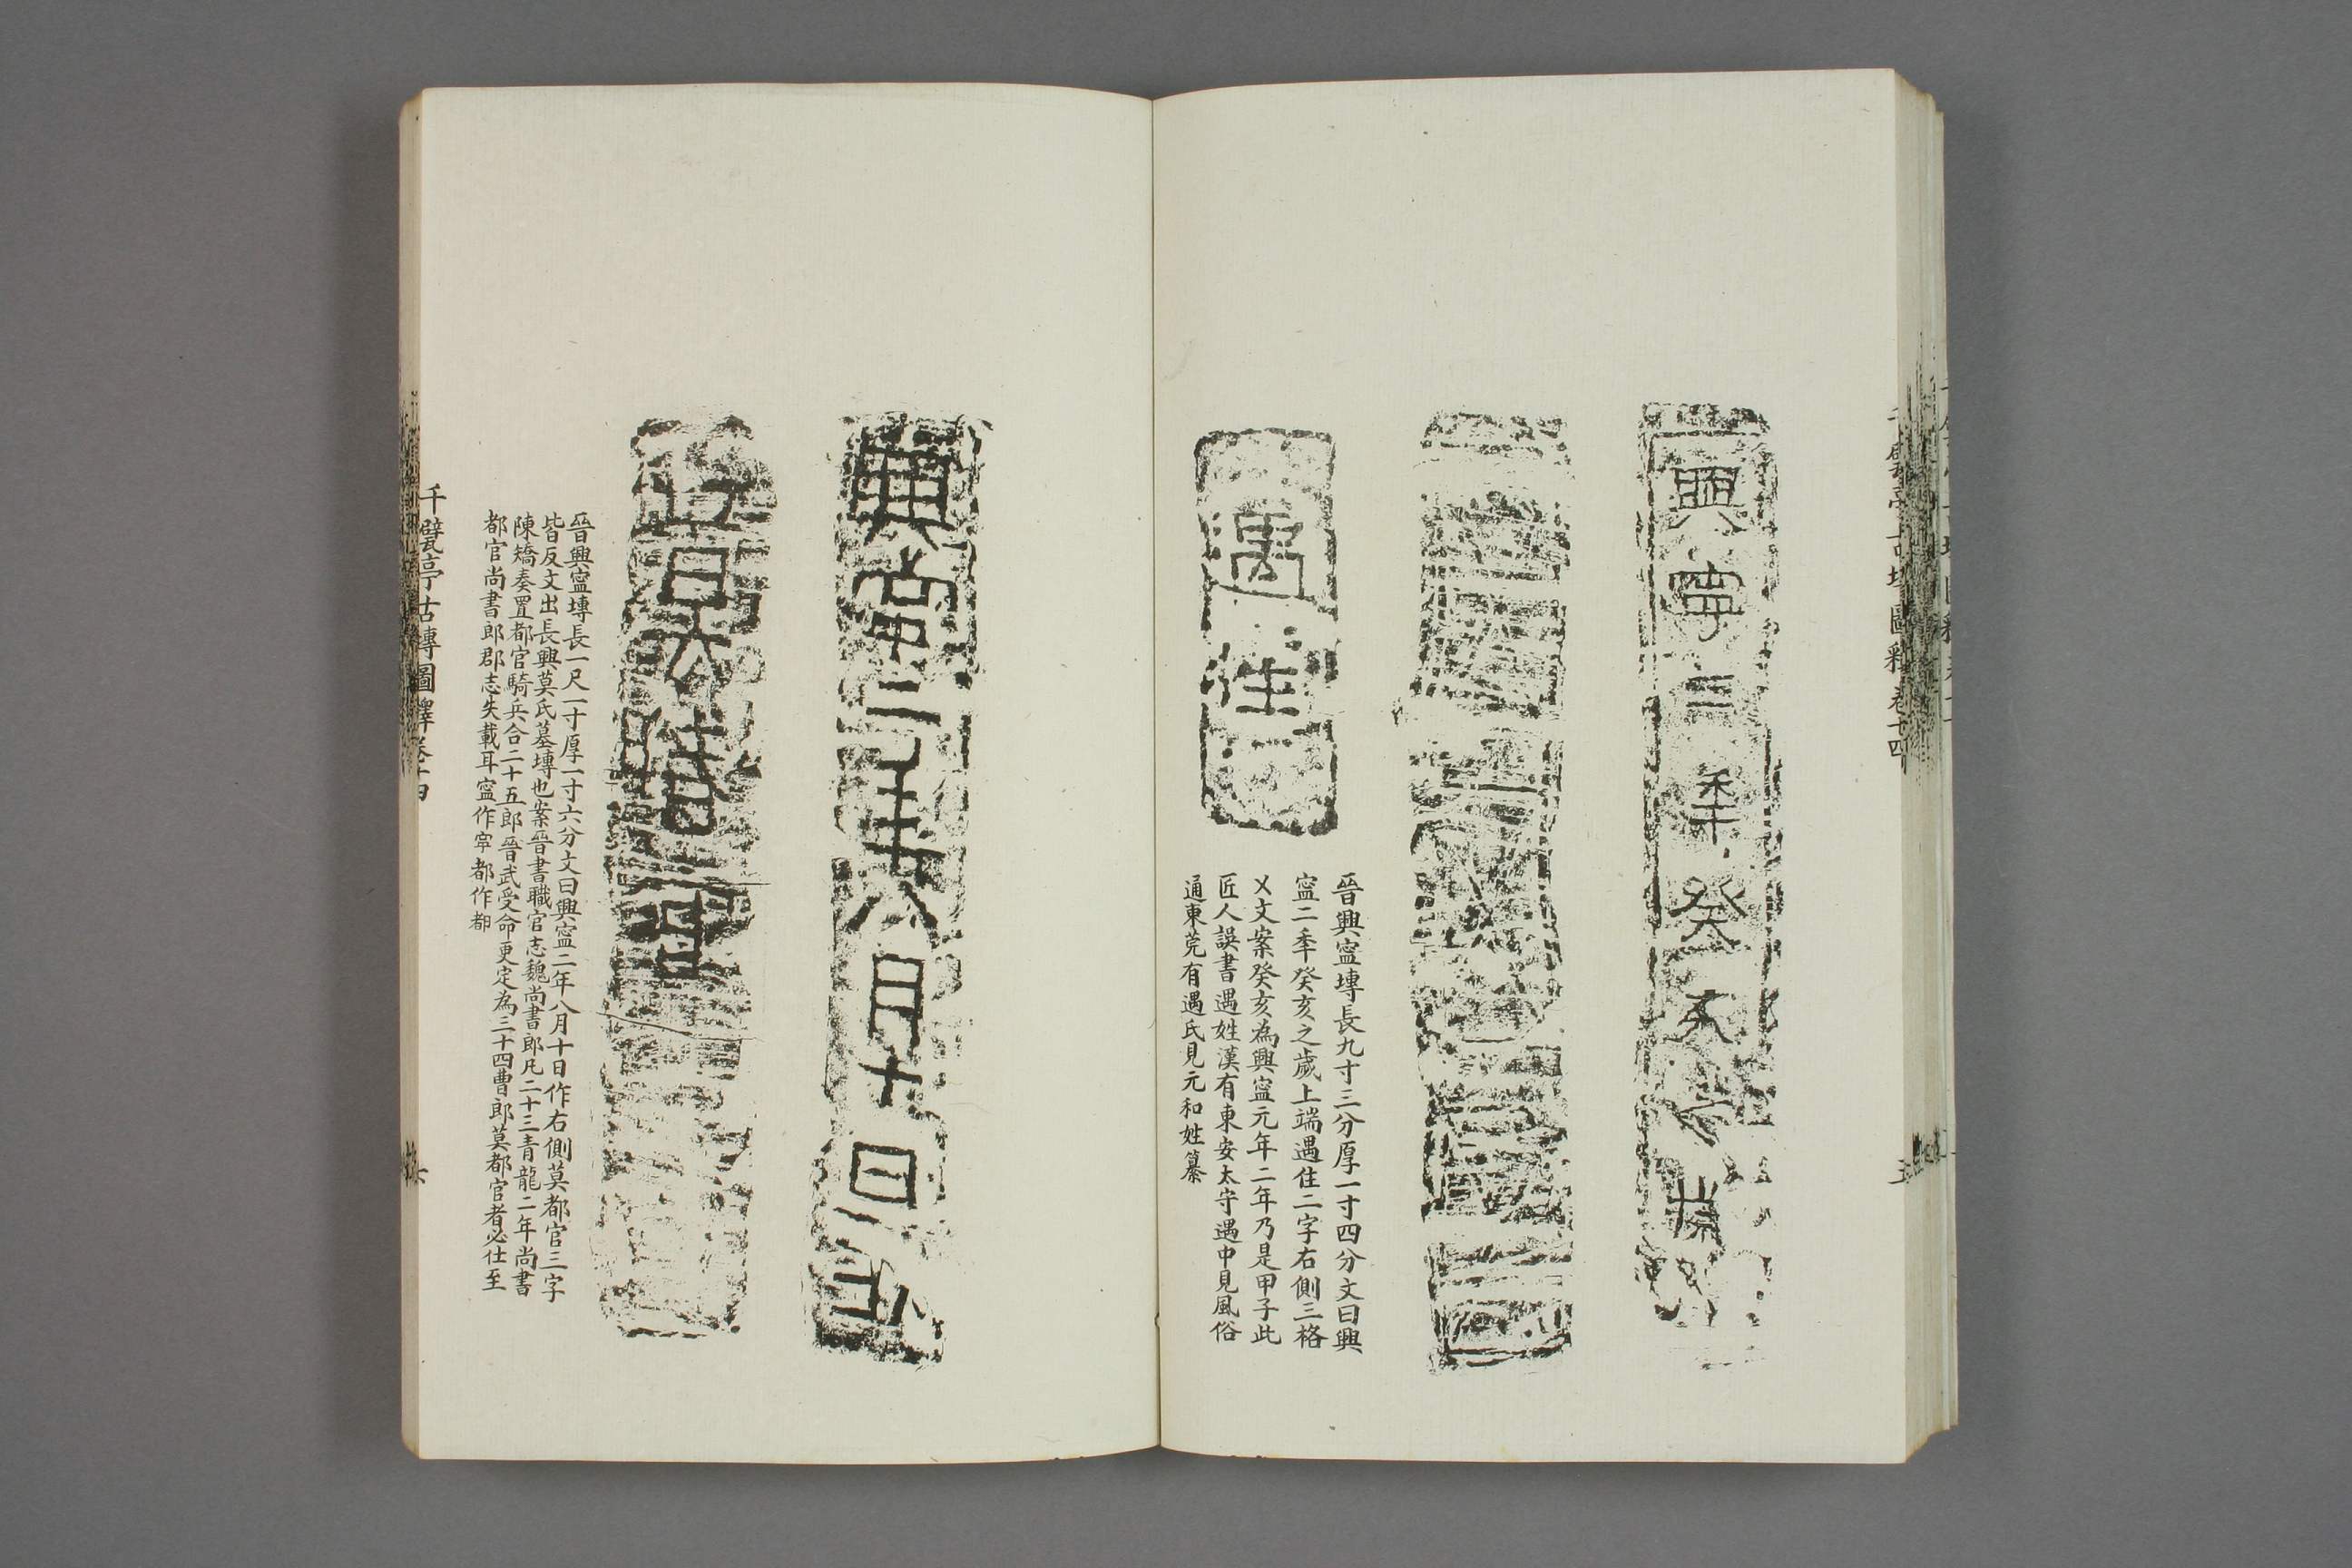 興寧二年癸亥之歲
遇住
晉興寍塼長九寸三分厚一寸四分文曰興
寍二秊癸亥之歲上端遇住二字右側三格
㐅文案癸亥為興寍元年二年乃是甲子此
匠人誤書遇姓漢有東安太守遇中見風俗
通東莞有遇氏見元和姓纂
興寍二年八月十日作
莫都官
晉興寍塼長一尺一寸厚一寸六分文曰興寍二年八月十日作右側莫都官三字
皆反文出長興莫氏墓塼也案晉書職官志魏尚書郎凡二十三青龍二年尚書
陳矯奏置都官騎兵合二十五郎晉武受命更定為三十四曹郎莫都官者必仕至
都官尚書郎郡志失載耳寍作寕都作都
千甓亭古塼圖釋卷十四